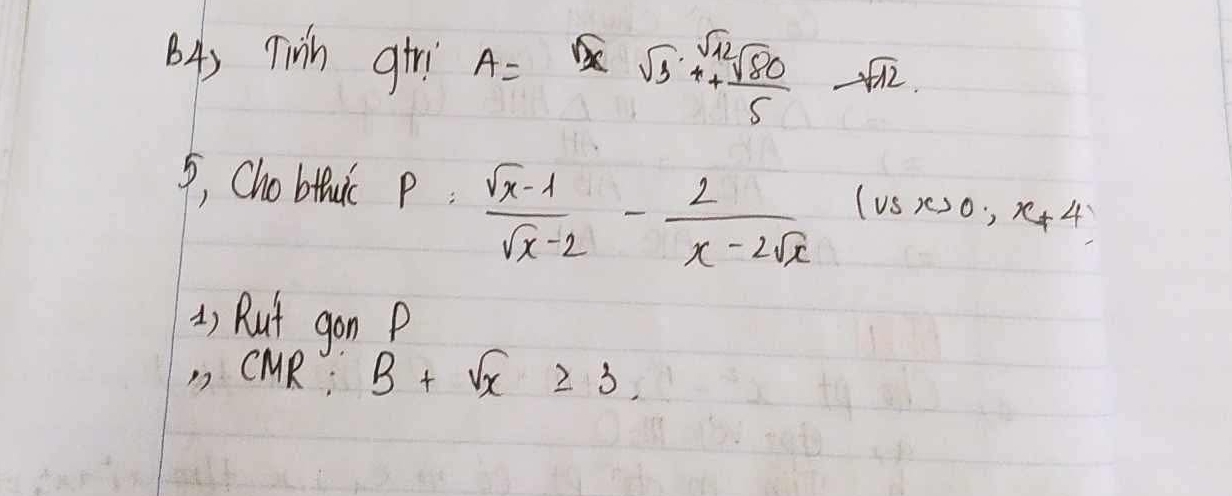 B4, Tính gtrị A = √3 . √12 + √80/5 - √12.
5, Cho bthức P : (√x - 1)/(√x - 2) - 2/(x - 2√x) (vs x>0 ; x ≠ 4)
1, Rút gọn P
CMR : B + √x ≥ 3.